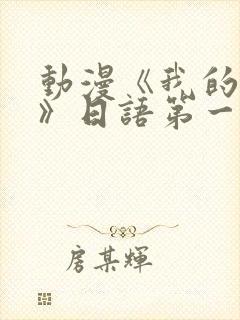 動漫《我的
》日語第一
房某輝